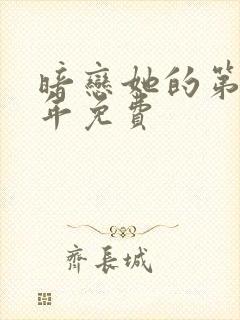 暗戀她的第
年免費
齊長城